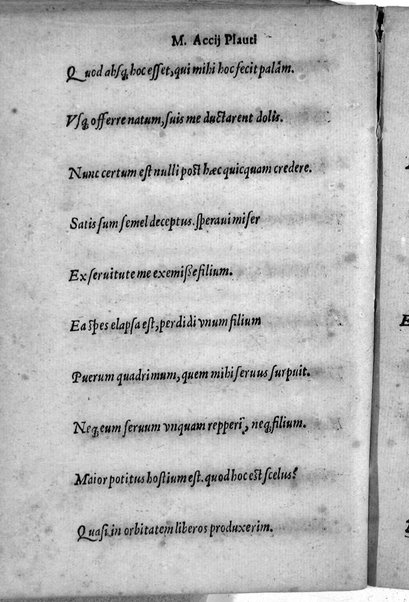 M. Accij Plauti
Quod absq; hoc esset, qui mihi hoc fecit palàm.
Vsq; offerre natum, suis me ductarent dolis.
Nunc certum est nulli post hæc quicquam credere.
Satis sum semel deceptus. speraui miser
Ex seruitute me exemisse filium.
Ea spes elapsa est, perdidi vnum filium
Puerum quadrimum, quem mihi seruus surpuit.
Neq; eum seruum vnquam repperi, neq; filium.
Maior potitus hostium est. quod hoc est scelus?
Quasi in orbitatem liberos produxerim.